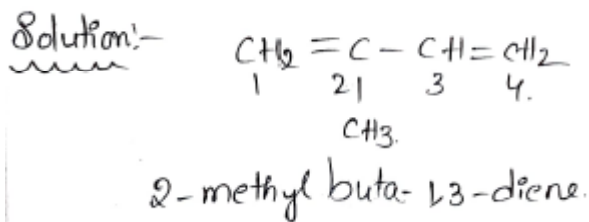 Solution:-
CH2 = C - CH = CH2
1 2| 3 4.
CH3.
2-methyl buta-1,3-diene.